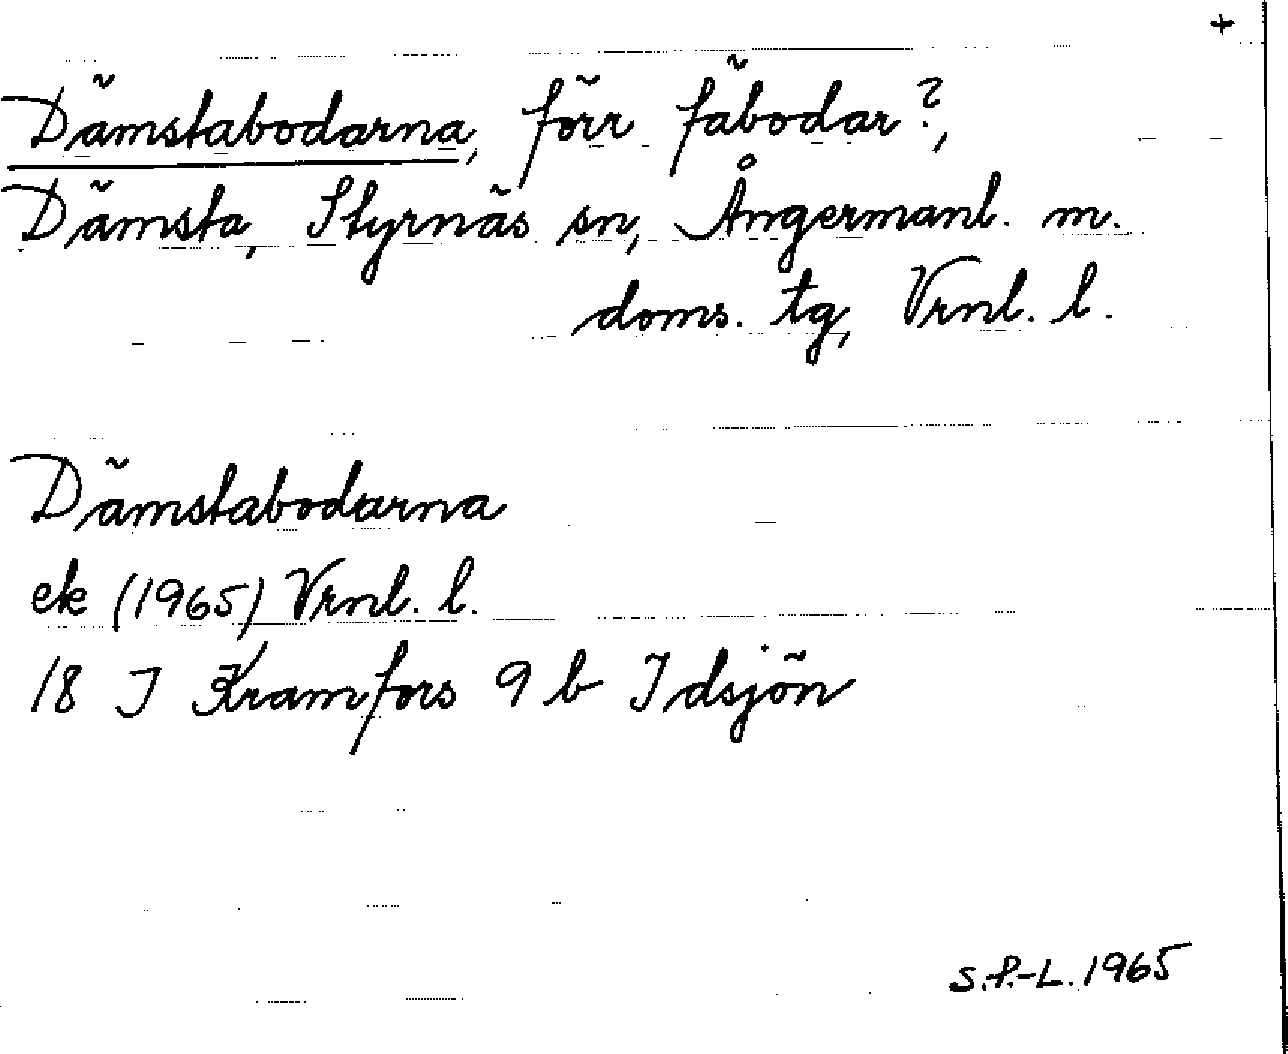 +
Dämstabodarna, förr fäbodar?,
Dämsta, Styrnäs sn, Ångermanl. m.
doms. tg, Vrnl. l.
Dämstabodarna
ek (1965) Vrnl. l.
18 I Kramfors 9 b Idsjön
S.P.-L. 1965